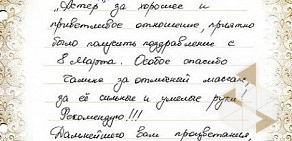 „Астер" за хорошее и
приветливое отношение, приятно
было получить поздравление с
8 Марта. Особое спасибо
Галине за отличный массаж,
за её сильные и умелые руки
Рекомендую!!!
Дальнейшего вам процветания,